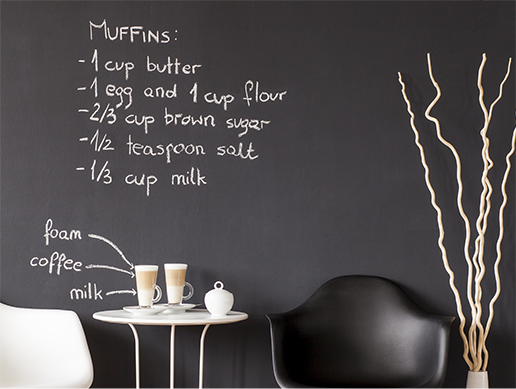 MUFFINS:
-1 cup butter
-1 egg and 1 cup flour
-2/3 cup brown sugar
-1/2 teaspoon salt
-1/3 cup milk
foam
coffee
milk